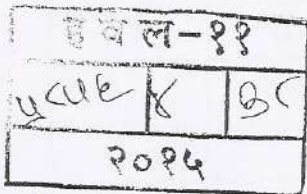 हवल-११
५८५६ ४
२०१५